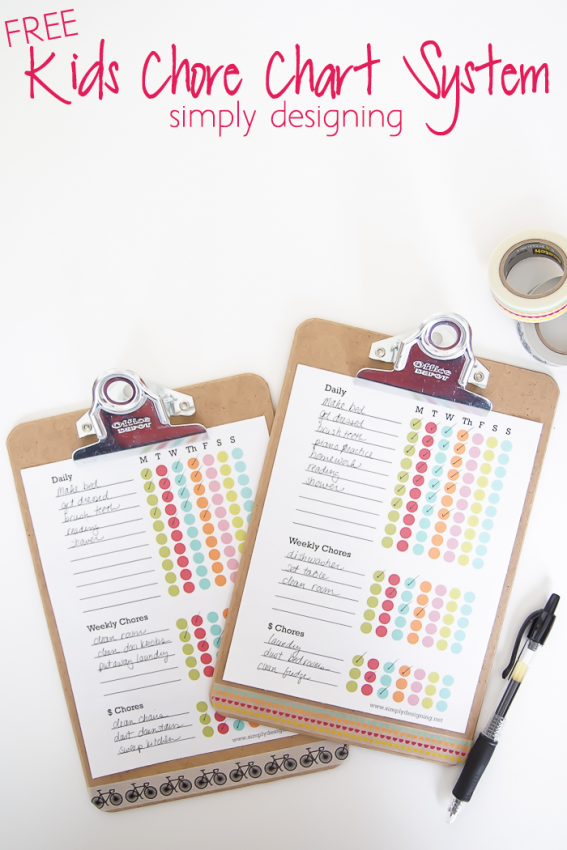 FREE
Kids Chore Chart System
simply designing
Office
DEPOT
Daily
M T W Th F S S
make bed
get dressed
brush teeth
reading
shower
Weekly Chores
clean room
putaway laundry
$ Chores
clean chairs
dust downstairs
sweep kitchen
www.simplydesigning
Office
DEPOT
Daily
M T W Th F S S
make bed
get dressed
brush teeth
piano practice
homework
reading
shower
Weekly Chores
dishwasher
set table
clean room
$ Chores
laundry
dust bedrooms
clean fridge
www.simplydesigning.net